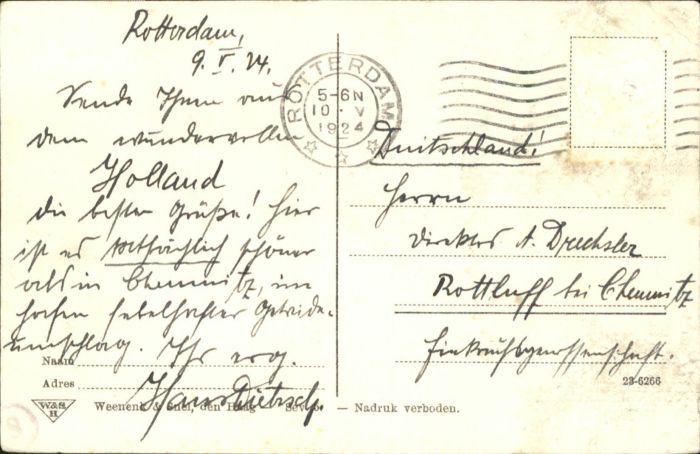 Rotterdam,
9. V. 24.
Sende Ihnen aus
dem wundervollen
Holland
die besten Grüße! Hier
ist es tatsächlich schöner
als in Chemnitz, im
Hafen fabelhafter Getreide-
umschlag. Ihr erg.
Hans Dietzsch.
ROTTERDAM
5-6N
10 V
1924
Deutschland!
Herrn
Direktor A. Drechsler
Rottluff bei Chemnitz
Einkaufsgenossenschaft.
Naam
Adres
23-6266
W&S
H
Weenenk & Snel, den Haag
— Nadruk verboden.